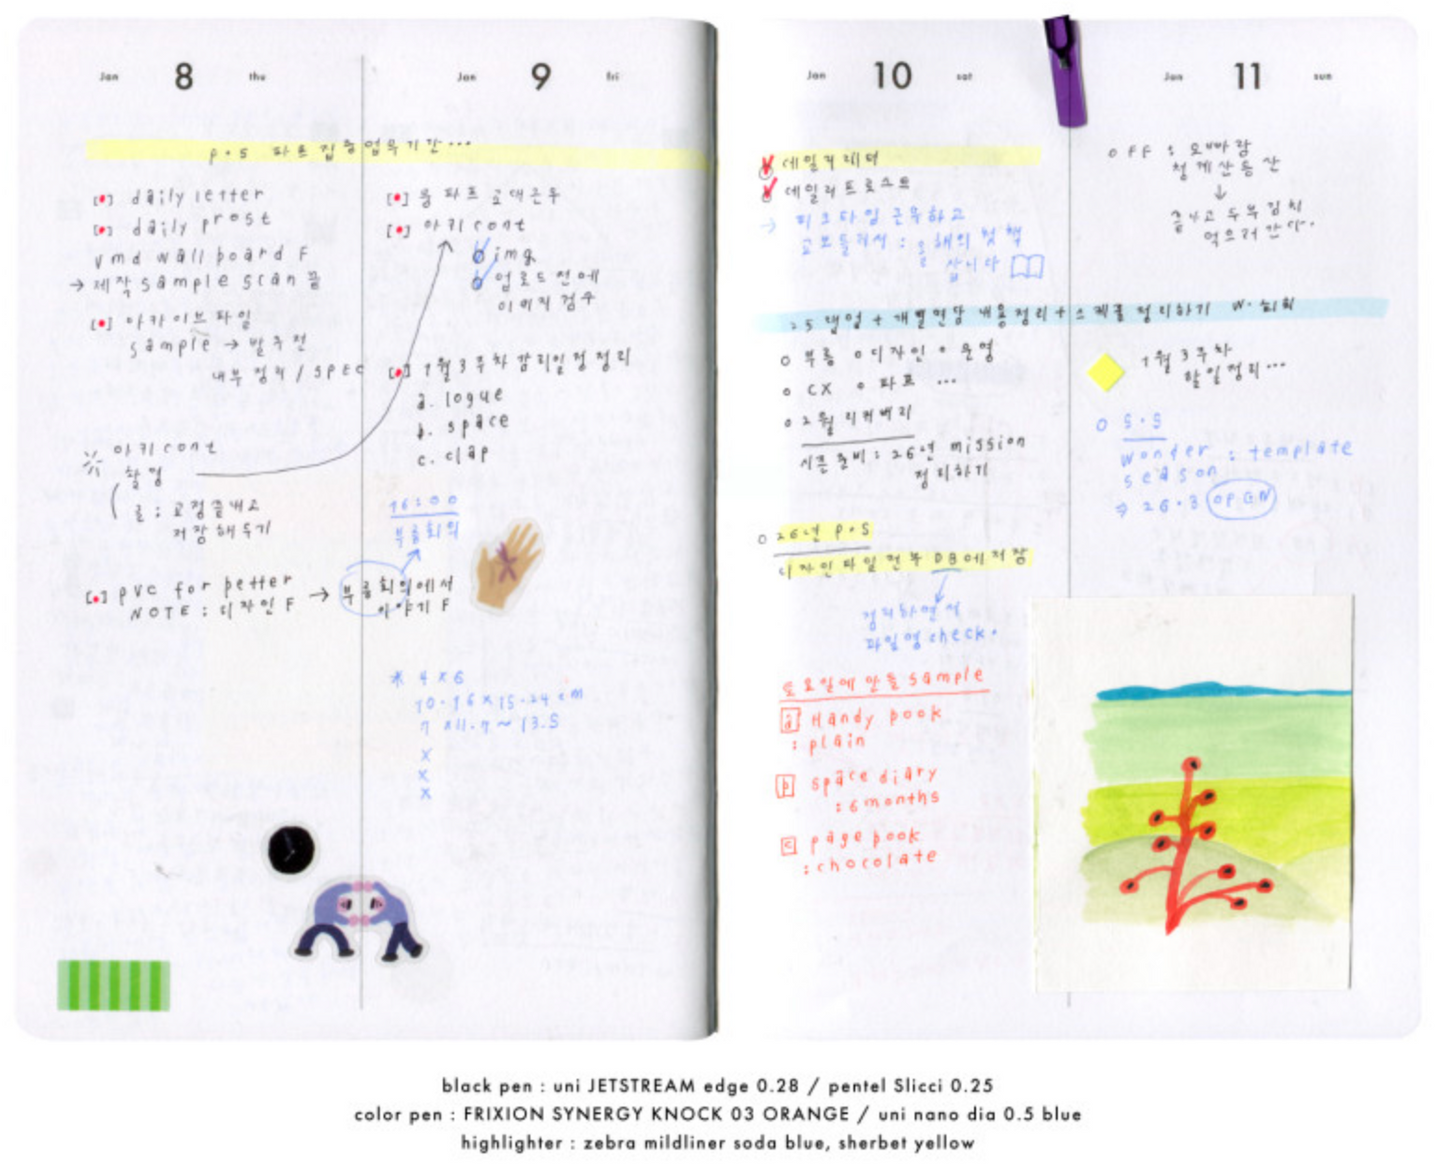 Jan 8 thu
Jan 9 fri
p.s 파트 집중업무기간...
[•] daily letter
[•] daily prost
vmd wall board F
→ 제작 sample scan 끝
[•] 아카이브파일
sample → 발주전
내부정리/SPEC
아카 cont
촬영
글: 교정끝내고
저장해두기
[•] pvc for better → 부름회의에서
NOTE : 디자인 F 이야기 F
[•] 몸 파트 교대근무
[•] 아카 cont
img
업로드 전에
이미지 검수
[•] 1월 3주차 감리일정 정리
a. logue
b. space
c. clap
16:00
부름회의
* 4 x 6
10.16 x 15.24 cm
7 x 11.7 ~ 13.5
x
x
x
Jan 10 sat
Jan 11 sun
데일리레터
데일리프로스트
→ 피크타임 근무하고
교보들러서 : 올해의 첫 책
삽니다
25 랩업 + 개별면담 내용정리 + 스케줄 정리하기
o 부름 o 디자인 o 운영
o CX o 파트 ...
o 2월 리커버리
시즌준비 : 26년 mission
정리하기
o 26년 p.s
디자인파일전부 DB에 저장
정리하면서
파일명 check.
토요일에 만들 sample
a Handy book
: plain
b space diary
: 6 months
c page book
: chocolate
OFF : 오빠랑
청계산등산
↓
하고 두부김치
먹으러 간다.
1월 3주차
할일정리...
o S.S
wonder : template
season
⇒ 26.3 OPEN
black pen : uni JETSTREAM edge 0.28 / pentel Slicci 0.25
color pen : FRIXION SYNERGY KNOCK 03 ORANGE / uni nano dia 0.5 blue
highlighter : zebra mildliner soda blue, sherbet yellow